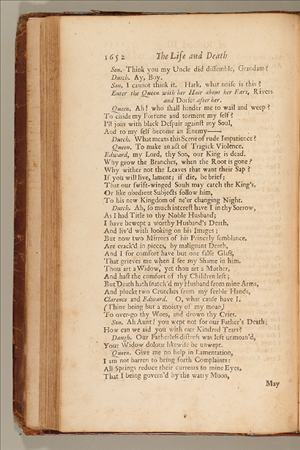 1652 The Life and Death
Son. Think you my Uncle did dissemble, Grandam?
Dutch. Ay, Boy.
Son. I cannot think it. Hark, what noise is this?
Enter the Queen with her Hair about her Ears, Rivers
and Dorset after her.
Queen. Ah! who shall hinder me to wail and weep?
To chide my Fortune and torment my self?
I'll join with black Despair against my Soul,
And to my self become an Enemy—
Dutch. What means this Scene of rude Impatience?
Queen. To make an act of Tragick Violence.
Edward, my Lord, thy Son, our King is dead.
Why grow the Branches, when the Root is gone?
Why wither not the Leaves that want their Sap?
If you will live, lament; if die, be brief;
That our swift-winged Souls may catch the King's,
Or like obedient Subjects follow him,
To his new Kingdom of ne'er changing Night.
Dutch. Ah, so much interest have I in thy Sorrow,
As I had Title to thy Noble Husband;
I have bewept a worthy Husband's Death,
And liv'd with looking on his Images:
But now two Mirrors of his Princely semblance,
Are crack'd in pieces, by malignant Death,
And I for comfort have but one false Glass,
That grieves me when I see my Shame in him.
Thou art a Widow, yet thou art a Mother,
And hast the comfort of thy Children left;
But Death hath snatch'd my Husband from mine Arms,
And pluckt two Crutches from my feeble Hands,
Clarence and Edward. O, what cause have I,
(Thine being but a moiety of my moan,)
To over-go thy Woes, and drown thy Cries.
Son. Ah Aunt! you wept not for our Father's Death;
How can we aid you with our Kindred Tears?
Daugh. Our Fatherless distress was left unmoan'd,
Your Widow dolour likewise be unwept.
Queen. Give me no help in Lamentation,
I am not barren to bring forth Complaints:
All Springs reduce their currents to mine Eyes,
That I being govern'd by the watry Moon,
May